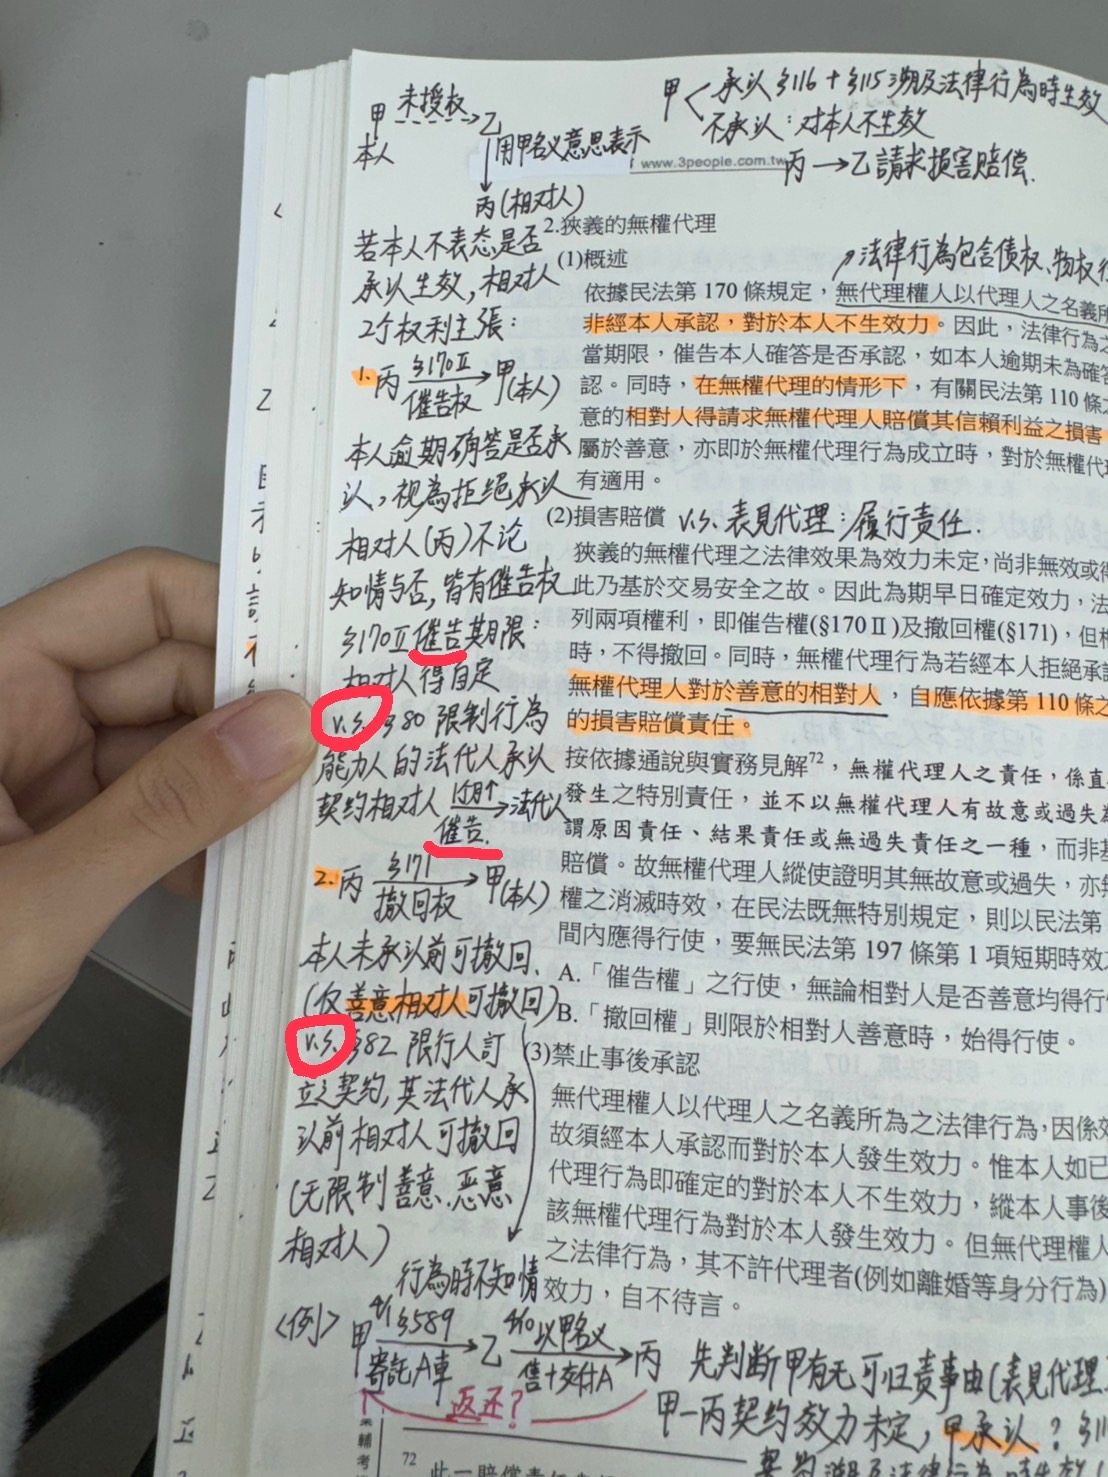 甲 未授权 乙
本人
用甲名义意思表示
丙(相对人)
甲 承认 §116+§115 溯及法律行為時生效
不承认:对本人不生效
www.3people.com.tw
丙→乙請求損害賠偿.
若本人不表态是否
承认生效,相对人
2个权利主張:
1.丙 §170Ⅱ 催告权 →甲(本人)
本人逾期确答是否承
认,視為拒绝承认
相对人(丙)不论
知情与否,皆有催告权
§170Ⅱ催告期限:
相对人得自定
v.s. §80 限制行為
能力人的法代人承认
契约相对人 → 法代人
催告.
2.丙 §171 撤回权 →甲(本人)
本人未承认前可撤回.
(仅善意相对人可撤回)
v.s. §82 限行人訂
立之契约,其法代人承
认前相对人可撤回
(无限制善意.恶意
相对人)
行為時不知情
2.狹義的無權代理
(1)概述
法律行為包含债权、物权行
依據民法第 170 條規定,無代理權人以代理人之名義所
非經本人承認,對於本人不生效力。因此,法律行為之
當期限,催告本人確答是否承認,如本人逾期未為確答
認。同時,在無權代理的情形下,有關民法第 110 條
意的相對人得請求無權代理人賠償其信賴利益之損害
屬於善意,亦即於無權代理行為成立時,對於無權代理
有適用。
(2)損害賠償 v.s. 表見代理:履行责任.
狹義的無權代理之法律效果為效力未定,尚非無效或得
此乃基於交易安全之故。因此為期早日確定效力,法
列兩項權利,即催告權(§170Ⅱ)及撤回權(§171),但相
時,不得撤回。同時,無權代理行為若經本人拒絕承認
無權代理人對於善意的相對人,自應依據第 110 條之
的損害賠償責任。
按依據通說與實務見解72,無權代理人之責任,係直
發生之特別責任,並不以無權代理人有故意或過失為
謂原因責任、結果責任或無過失責任之一種,而非基
賠償。故無權代理人縱使證明其無故意或過失,亦無
權之消滅時效,在民法既無特別規定,則以民法第
間內應得行使,要無民法第 197 條第 1 項短期時效之
A.「催告權」之行使,無論相對人是否善意均得行
B.「撤回權」則限於相對人善意時,始得行使。
(3)禁止事後承認
無代理權人以代理人之名義所為之法律行為,因係效
故須經本人承認而對於本人發生效力。惟本人如已
代理行為即確定的對於本人不生效力,縱本人事後
該無權代理行為對於本人發生效力。但無代理權人
之法律行為,其不許代理者(例如離婚等身分行為)
效力,自不待言。
<例> 甲 4/1 §589 寄託A車 → 乙 4/10 以甲名义 售+交付A → 丙 先判断甲有无可归责事由(表見代理
返还?
甲-丙契约效力未定,甲承认?
輔考
72